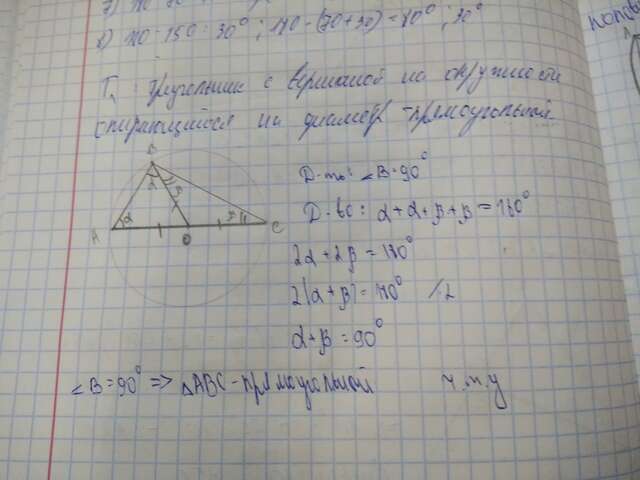 8) 180-150=30°; 180-(70+30)=80°; 30°
Т. треугольник с вершиной на окружности
опирающийся на диаметр -прямоугольный
B
A
O
C
α
α
β
β
Д-ть: ∠B=90°
Д-во: α+α+β+β=180°
2α+2β=180°
2(α+β)=180° /:2
α+β=90°
∠B=90° => △ABC-прямоугольный ч.т.д